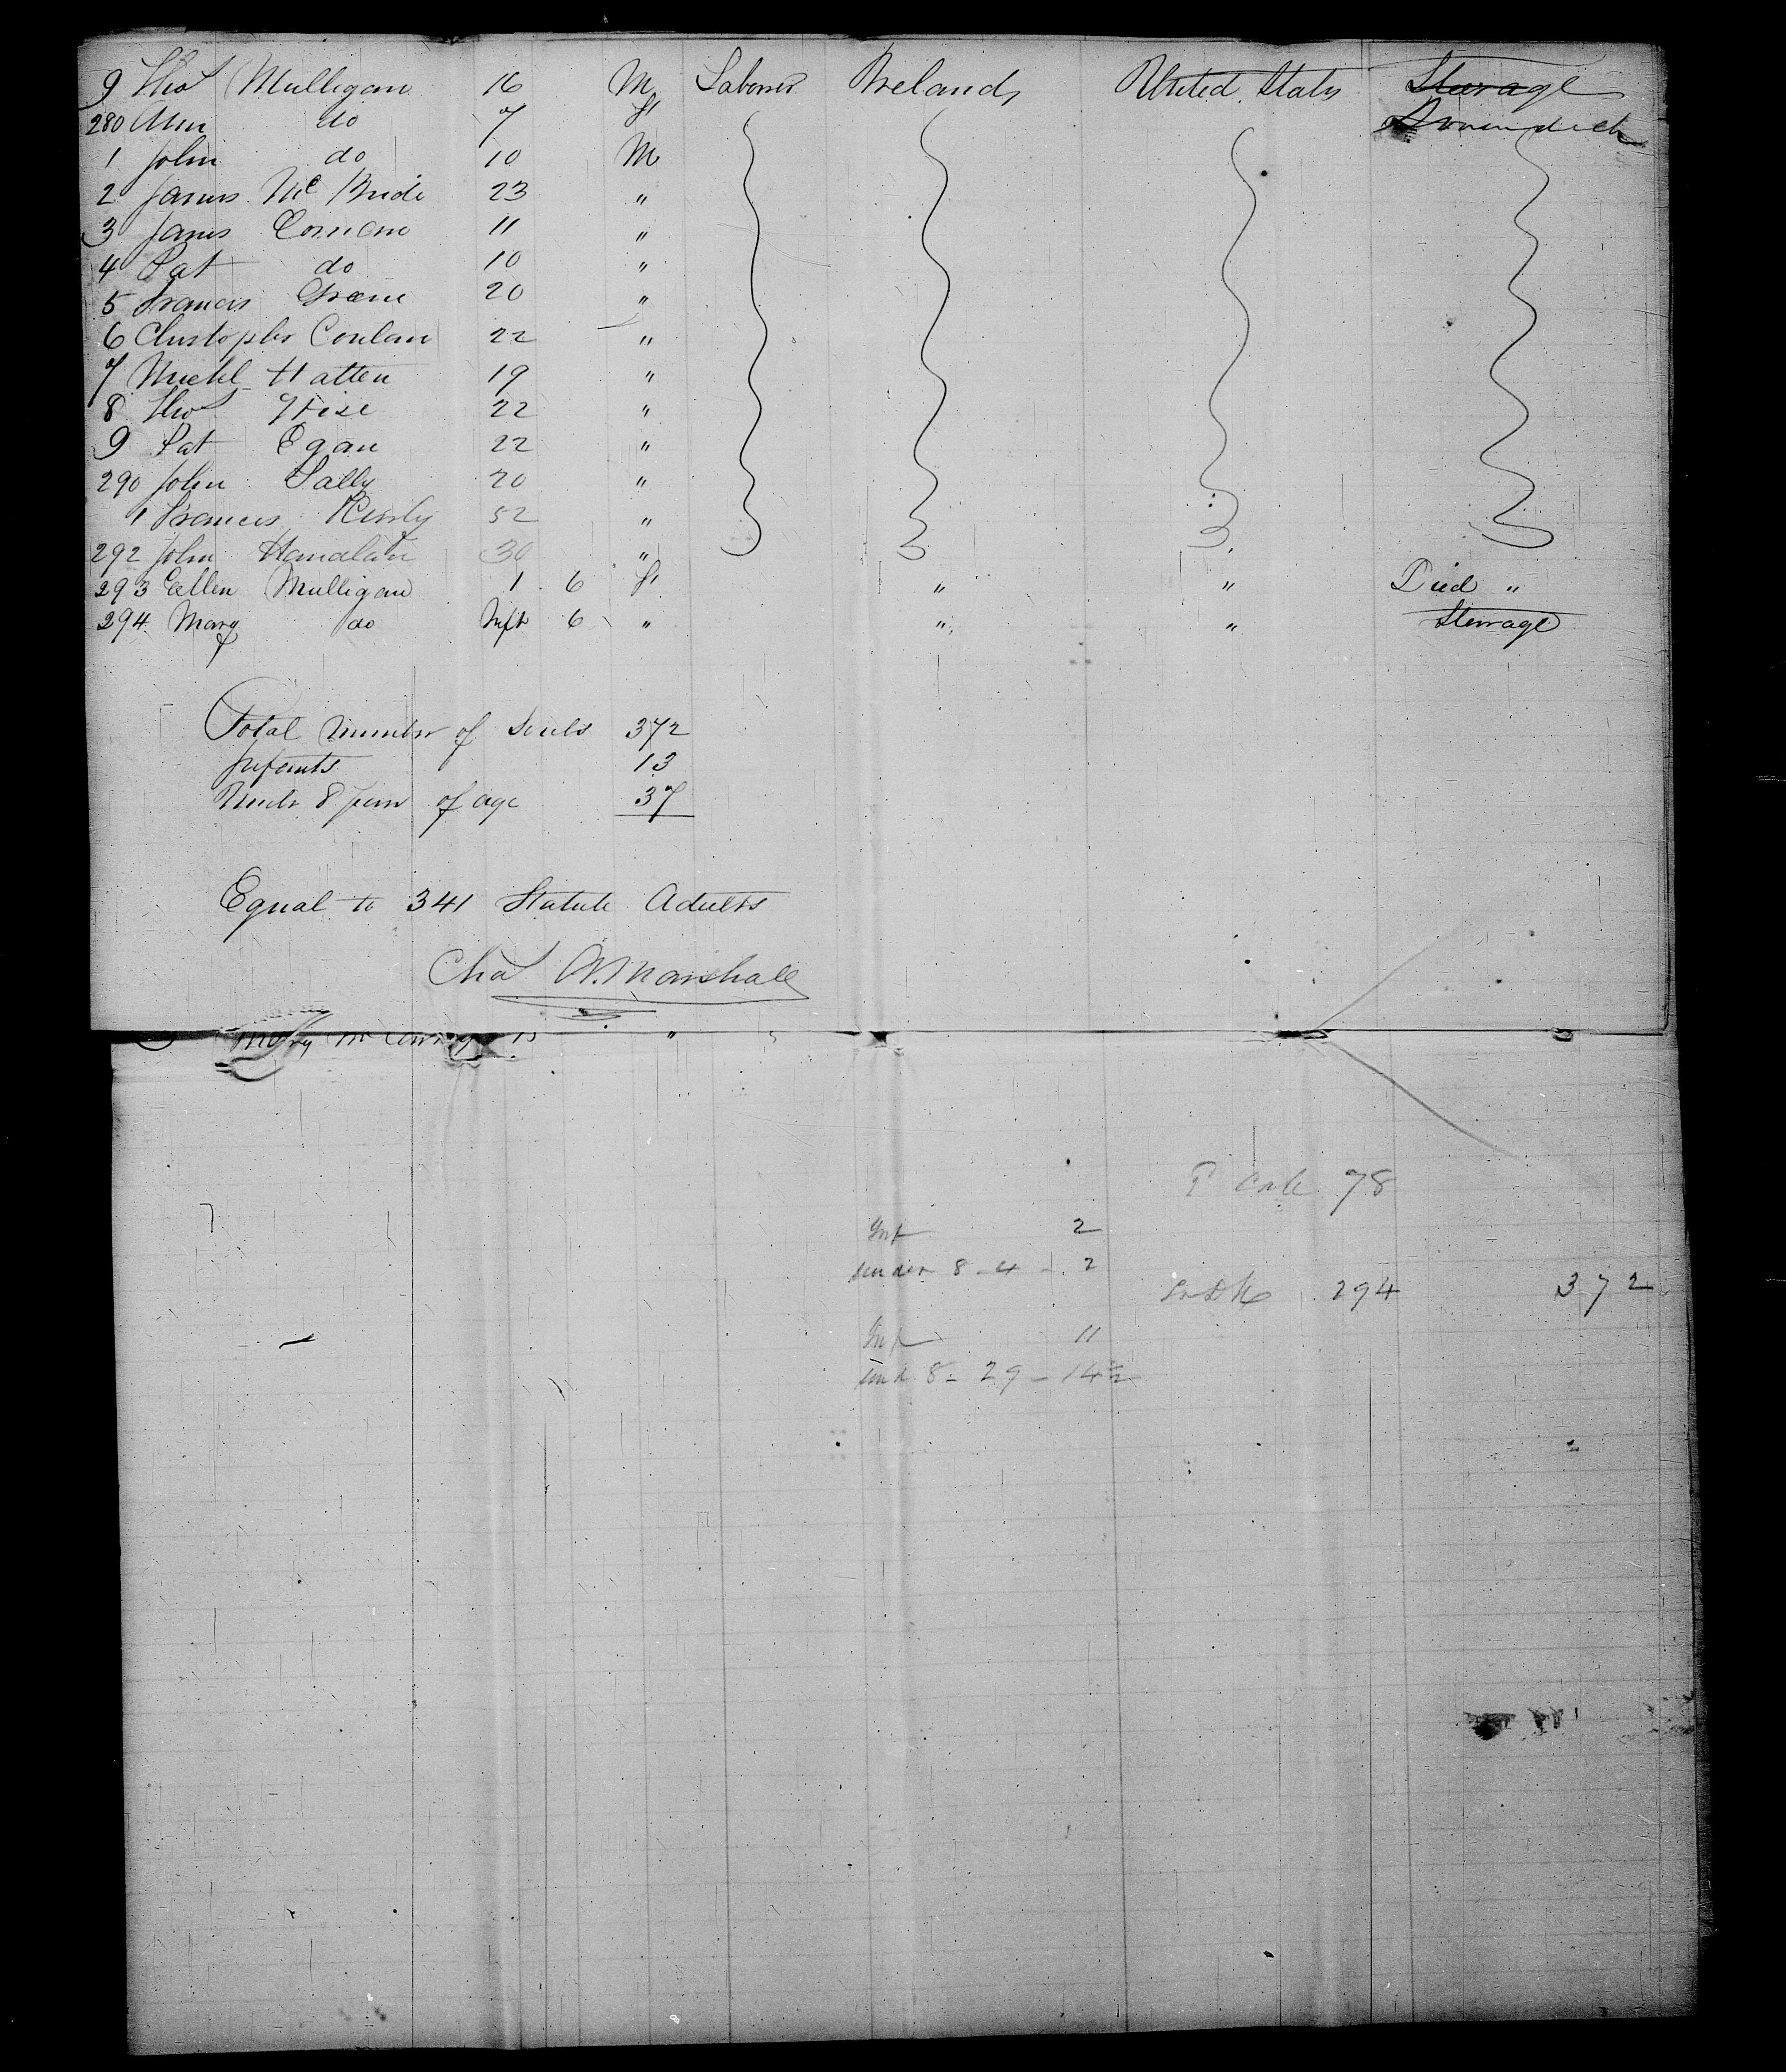 9 Thos Mulligan 16 M Laborers Ireland United States Steerage
280 Ann do 7 F
1 John do 10 M
2 James Mc Bride 23 "
3 James 11 "
4 Pat do 10 "
5 Francis 20 "
6 Christopher Conlan 22 "
7 Michl Hatten 19 "
8 Thos 22 "
9 Pat Egan 22 "
290 John Lally 20 "
1 Francis 52 "
292 John 30 "
293 Ellen Mulligan 1 6 F " " Died "
294 Mary do Inft 6 " " " Steerage
Total Number of Souls 372
Infants 13
Under 8 years of age 37
Equal to 341 Statute Adults
Chas A. Marshall
Mary
Cab 78
Inf 2
under 8 - 4 - 2
294 372
Inf 11
und 8 - 29 - 14½